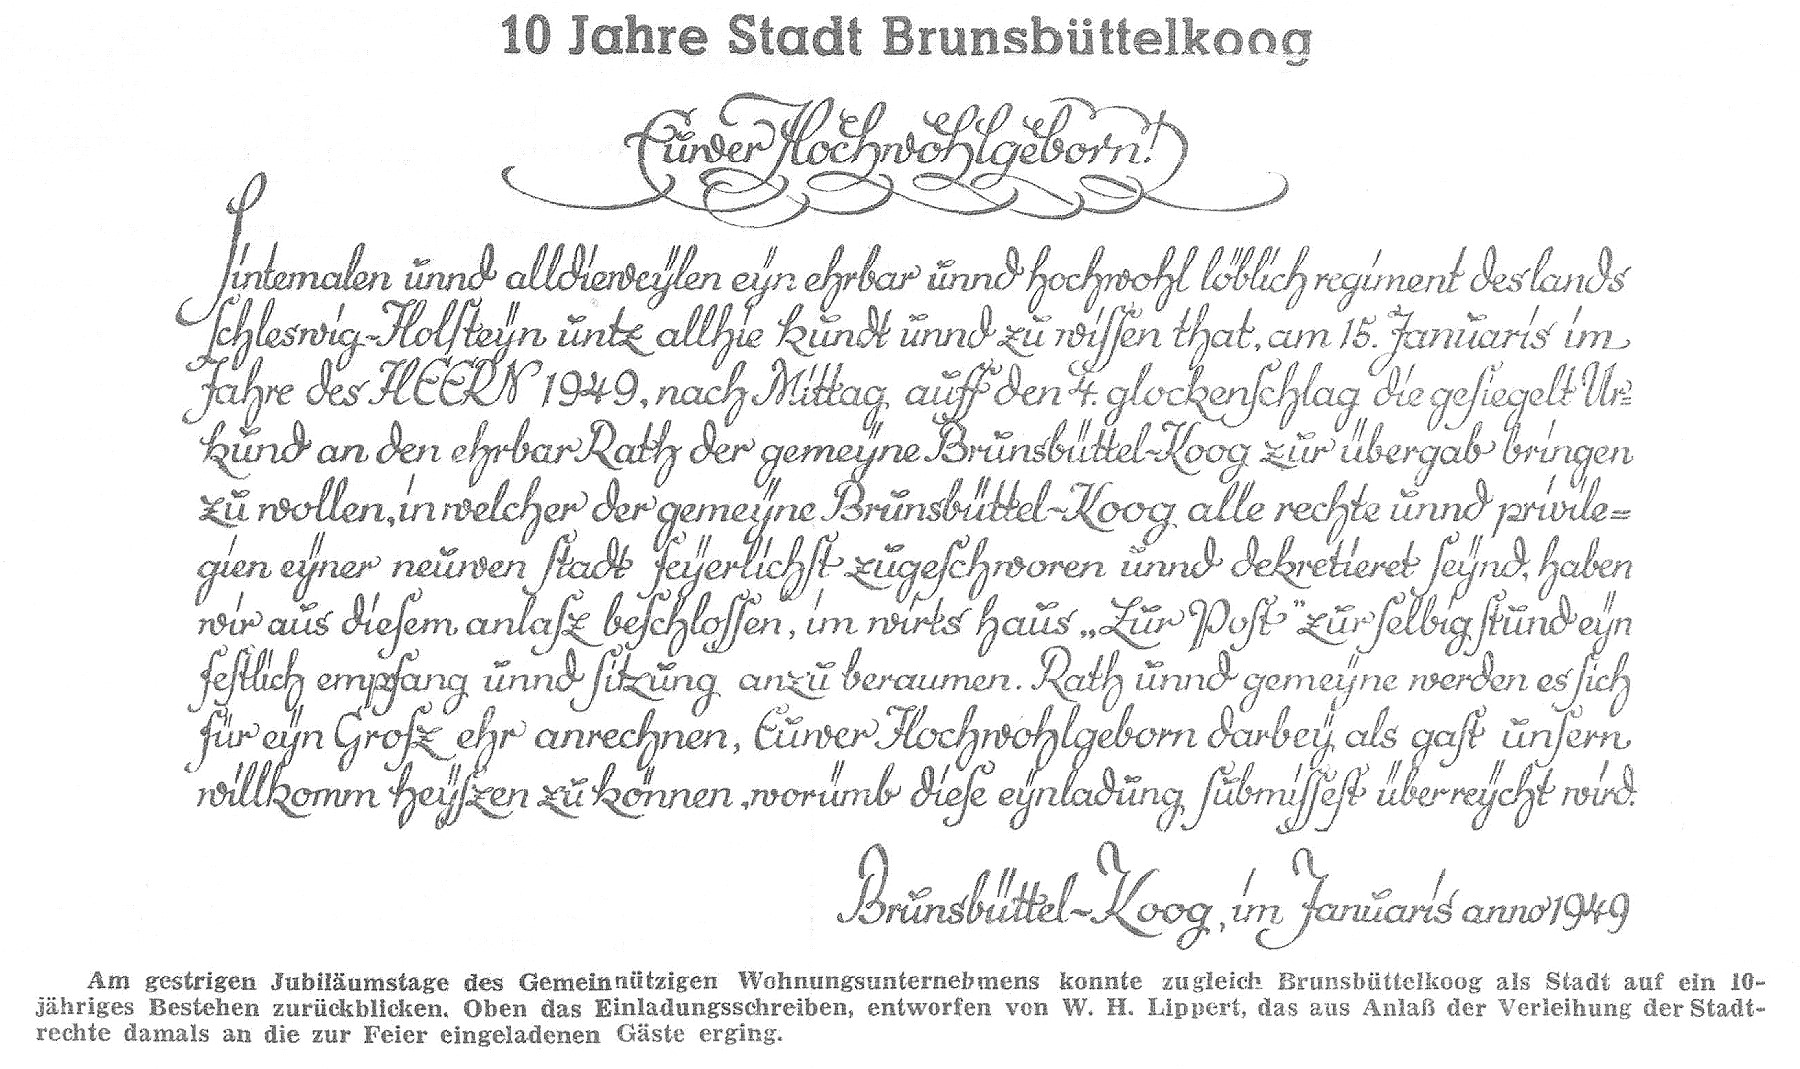 10 Jahre Stadt Brunsbüttelkoog
Euwer Hochwohlgeborn!
Sintemalen unnd alldieweÿlen eÿn ehrbar unnd hochwohl löblich regiment des lands
Schleswig-Holsteÿn untz allhie kundt unnd zu wissen that, am 15. Januaris im
Jahre des HEERN 1949, nach Mittag auff den 4. glockenschlag die gesiegelt Ur=
kund an den ehrbar Rath der gemeÿne Brunsbüttel-Koog zur übergab bringen
zu wollen, in welcher der gemeÿne Brunsbüttel-Koog alle rechte unnd privile=
gien eÿner neuwen stadt feÿerlichst zugeschworen unnd dekretieret seÿnd, haben
wir aus diesem anlasz beschlossen, im wirts haus „Zur Post" zur selbig stund eÿn
festlich empfang unnd sitzung anzu beraumen. Rath unnd gemeÿne werden es sich
für eÿn Grosz ehr anrechnen, Euwer Hochwohlgeborn darbeÿ als gast unsern
willkomm heÿszen zu können, worümb diese eÿnladung submissest überreÿcht wird.
Brunsbüttel-Koog, im Januaris anno 1949
Am gestrigen Jubiläumstage des Gemeinnützigen Wohnungsunternehmens konnte zugleich Brunsbüttelkoog als Stadt auf ein 10-
jähriges Bestehen zurückblicken. Oben das Einladungsschreiben, entworfen von W. H. Lippert, das aus Anlaß der Verleihung der Stadt-
rechte damals an die zur Feier eingeladenen Gäste erging.